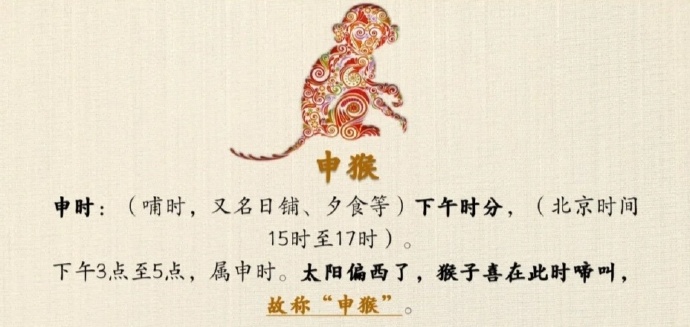 申猴
申时：（哺时，又名日铺、夕食等）下午时分，（北京时间
15时至17时）。
下午3点至5点，属申时。太阳偏西了，猴子喜在此时啼叫，
故称“申猴”。